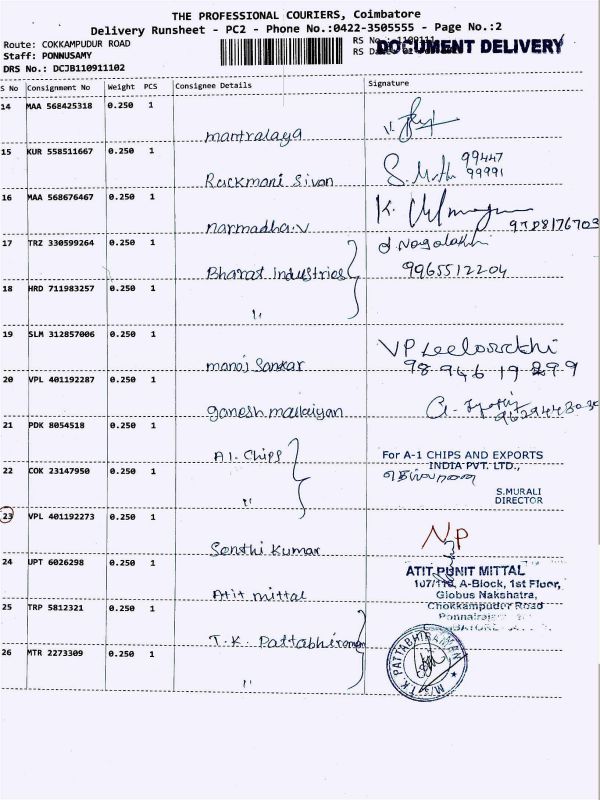 THE PROFESSIONAL COURIERS, Coimbatore
Delivery Runsheet - PC2 - Phone No.:0422-3505555 - Page No.:2
Route: COKKAMPUDUR ROAD
DOCUMENT DELIVERY
Staff: PONNUSAMY
DRS No.: DCJB110911102
S No Consignment No Weight PCS Consignee Details Signature
14 MAA 568425318 0.250 1
mantralaya
15 KUR 558511667 0.250 1
99447
Rackmani Sivan
99991
16 MAA 568676467 0.250 1
K.
narmadha.V
17 TRZ 330599264 0.250 1
Bharat Industries
9965512204
18 HRD 711983257 0.250 1
"
19 SLM 312857006 0.250 1
VP
manoj Sankar
20 VPL 401192287 0.250 1
ganesh
21 PDK 8054518 0.250 1
A1. Chips
For A-1 CHIPS AND EXPORTS
INDIA PVT. LTD.,
22 COK 23147950 0.250 1
"
S.MURALI
DIRECTOR
23 VPL 401192273 0.250 1
Senthi Kumar
24 UPT 6026298 0.250 1
ATIT PUNIT MITTAL
A-Block, 1st Floor,
Atit mittal
Globus Nakshatra,
Chokkampuder Road
25 TRP 5812321 0.250 1
T.K. Pattabhiraman
26 MTR 2273309 0.250 1
T.K. PATTABHIRAMAN
"